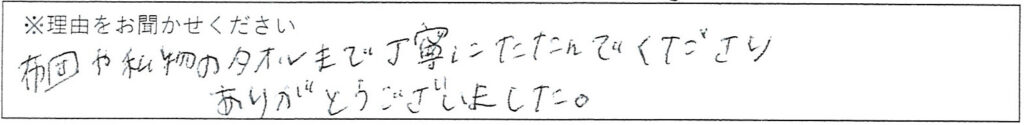 ※理由をお聞かせください
布団や私物のタオルまで丁寧にたたんでくださり
ありがとうございました。